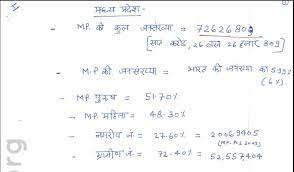 मध्य प्रदेश-
- M.P. की कुल जनसंख्या = 72626809
[सात करोड़, 26 लाख 26 हजार 809]
- M.P की जनसंख्या = भारत की जनसंख्या का 5.99%
(6%)
- M.P पुरुष = 51.70%
- M.P महिला = 48.30%
- नगरीय जं. = 27.60% = 20069405
- ग्रामीण जं. = 72.40% = 52,557,404
org